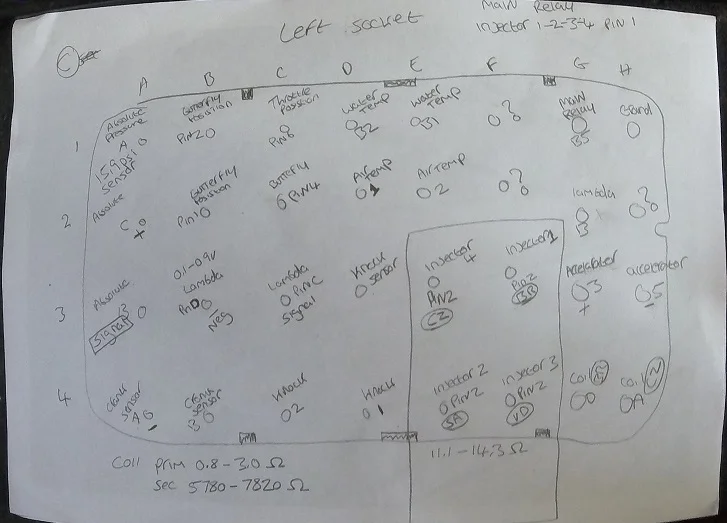 Main Relay
Left socket
Injector 1-2-3-4 Pin 1
C
A B C D E F G H
1
Absolute Pressure A
15,9 PSI Sensor
Butterfly Position Pin 2
Throttle Position Pin 6
Water Temp B2
Water Temp B1
?
Main Relay B5
GBand
2
Absolute C +
Butterfly Position Pin 1
Butterfly Pin 4
Air Temp 1
Air Temp 2
?
lambda B
?
3
Absolute B Signal
0.1-0.9V Lambda Pin D Neg
Lambda Pin C Signal
Knock Sensor
Injector 4 Pin 2
Injector 1 Pin 2 BR
Accelerator 3 +
accelerator 5 -
4
Crank Sensor A -
Crank Sensor B
Knock 2
Knock 1
Injector 2 Pin 2 SA
Injector 3 Pin 2 VD
Coil D
Coil A
Coil Prim 0.8-3.0 Ω
Sec 5780-7820 Ω
11.1-14.3 Ω